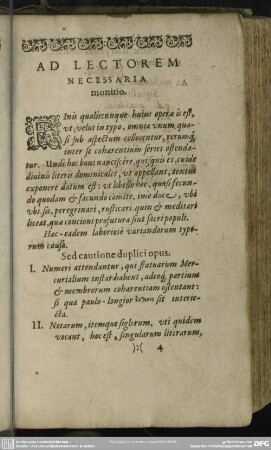 AD LECTOREM
NECESSARIA
monitio.
FInis qualiscunque huius operæ is est,
vt, velut in typo, omnia vnum, qua-
si sub aspectum collocentur, rerumq;
inter se cohærentium series ostenda-
tur. Vnde hoc boni nanciscére, quisquis es, cui de
diuinis literis dominicales, vt appellant, textus
exponere datum est: vt libello hoc, quasi secun-
do quodam & facundo comite, imò duce, vbi
vbi sis, peregrinari, rusticari, quin & meditari
liceat, quæ concioni profutura sint sacri populi.
Hac-eadem laboriosè variandorum typo-
rum causa.
Sed cautione duplici opus.
I. Numeri attendantur, qui statuarum Mer-
curialium instar habent, adeoq; partium
& membrorum cohærentiam ostentant:
si qua paulo-longior sit interie-
cta.
II. Notarum, itemque siglorum, vti quidem
vocant, hoc est, singularum literarum,
):( 4